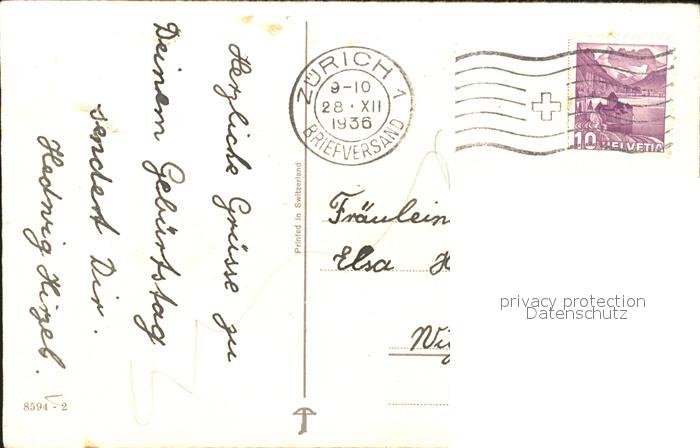 Herzliche Grüsse zu
Deinem Gebürtstag
sendet Dir.
Hedwig Hirzel.
8594 - 2
Printed in Switzerland
ZÜRICH 1
9-10
28 · XII
1936
BRIEFVERSAND
10 HELVETIA
Fräulein
Elsa H
privacy protection
Datenschutz